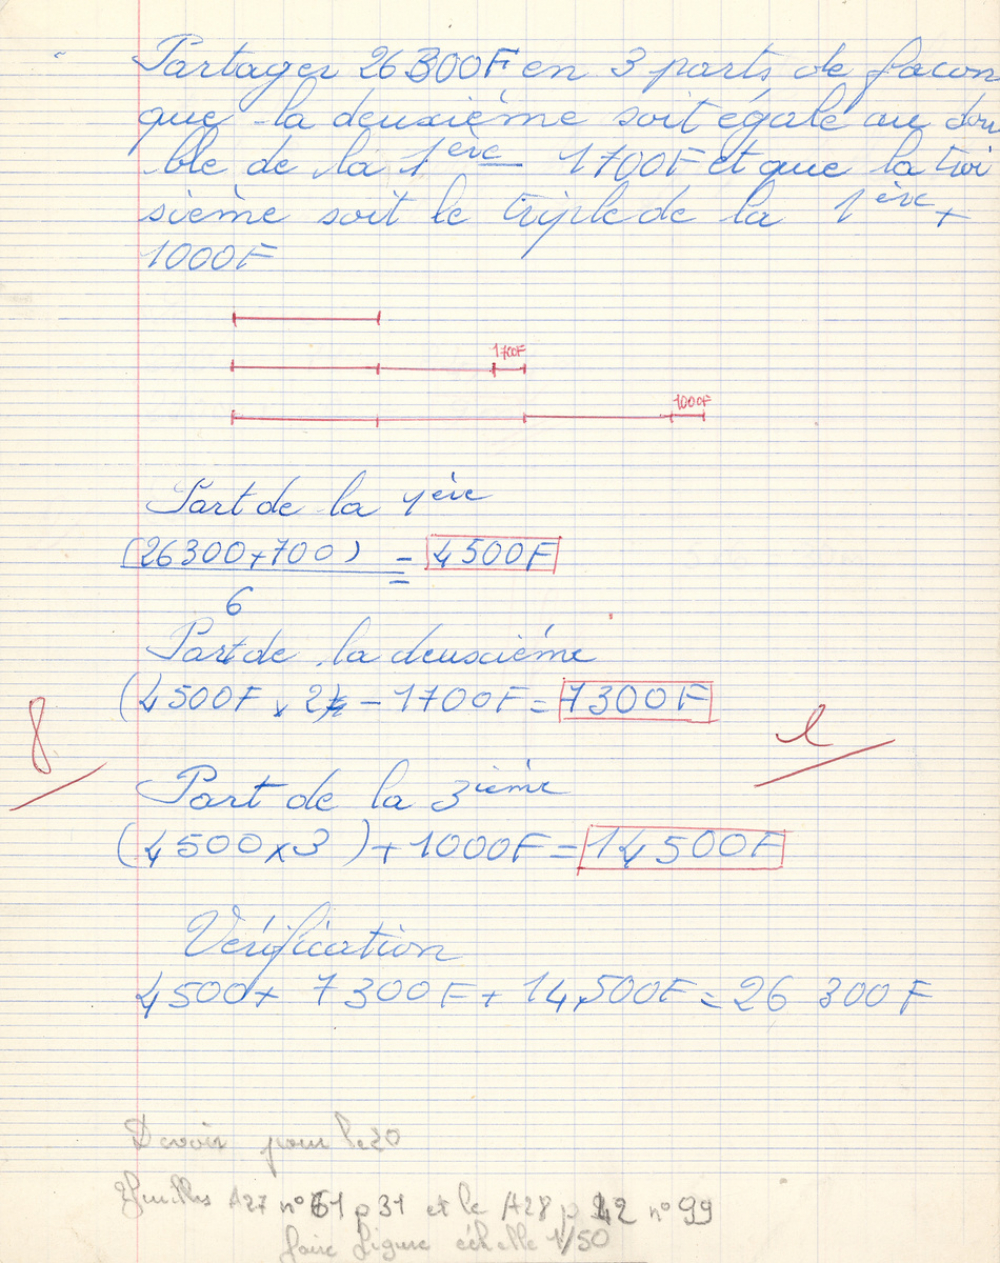 Partager 26300F en 3 parts de facon
que la deuxième soit égale au dou
ble de la 1ère - 1700F et que la troi
sième soit le triple de la 1ère +
1000F
1700F
1000F
Part de la 1ère
(26300+700) = 4500F
6
Part de la deuxième
(4500F x 2) - 1700F = 7300F
8
Part de la 3ième
(4500x3) + 1000F = 14500F
Vérification
4500+ 7300F + 14,500F = 26 300F
Devoir pour le 20
A27 n° 61 p 31 et le A28 p 42 n° 99
faire figure échelle 1/50